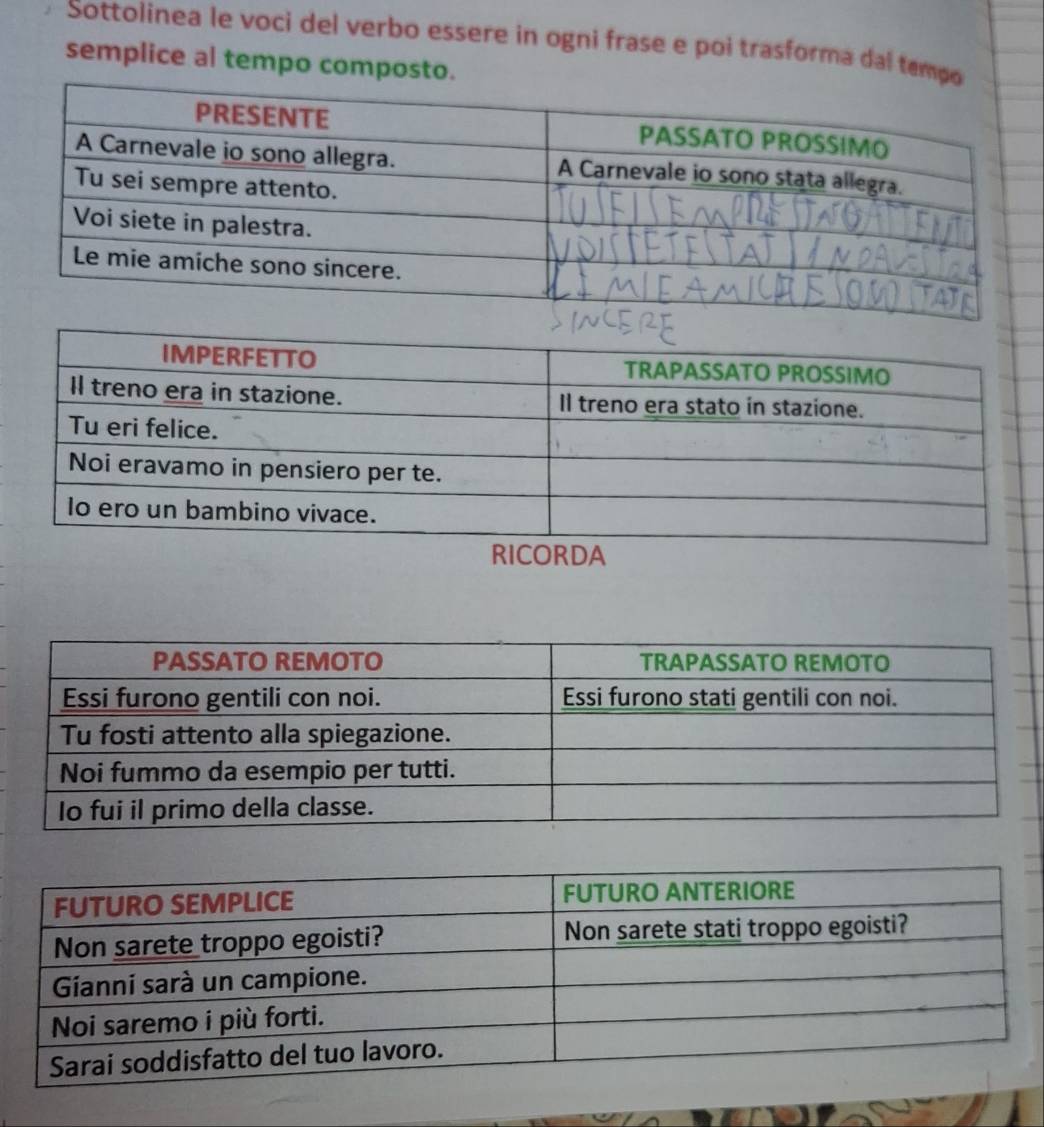 Sottolinea le voci del verbo essere in ogni frase e poi trasforma dal tempo
semplice al tempo composto.
PRESENTE
PASSATO PROSSIMO
A Carnevale io sono allegra.
A Carnevale io sono stata allegra.
Tu sei sempre attento.
TU SEI SEMPRE ATTENTO
Voi siete in palestra.
VOI SIETE STATI IN
Le mie amiche sono sincere.
MIE AMICHE SONO STATE
SINCERE
IMPERFETTO
TRAPASSATO PROSSIMO
Il treno era in stazione.
Il treno era stato in stazione.
Tu eri felice.
Noi eravamo in pensiero per te.
Io ero un bambino vivace.
RICORDA
PASSATO REMOTO
TRAPASSATO REMOTO
Essi furono gentili con noi.
Essi furono stati gentili con noi.
Tu fosti attento alla spiegazione.
Noi fummo da esempio per tutti.
Io fui il primo della classe.
FUTURO SEMPLICE
FUTURO ANTERIORE
Non sarete troppo egoisti?
Non sarete stati troppo egoisti?
Gianni sarà un campione.
Noi saremo i più forti.
Sarai soddisfatto del tuo lavoro.